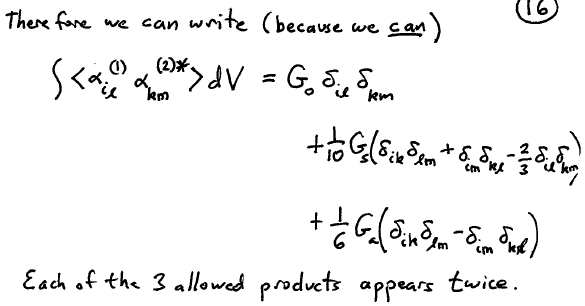 (16)
Therefore we can write (because we can)
∫<α_{il}^{(1)} α_{km}^{(2)*}>dV = G_0 δ_{il} δ_{km}
+ 1/10 G_s(δ_{ik} δ_{lm} + δ_{im} δ_{kl} - 2/3 δ_{il} δ_{km})
+ 1/6 G_a(δ_{ik} δ_{lm} - δ_{im} δ_{kl})
Each of the 3 allowed products appears twice.